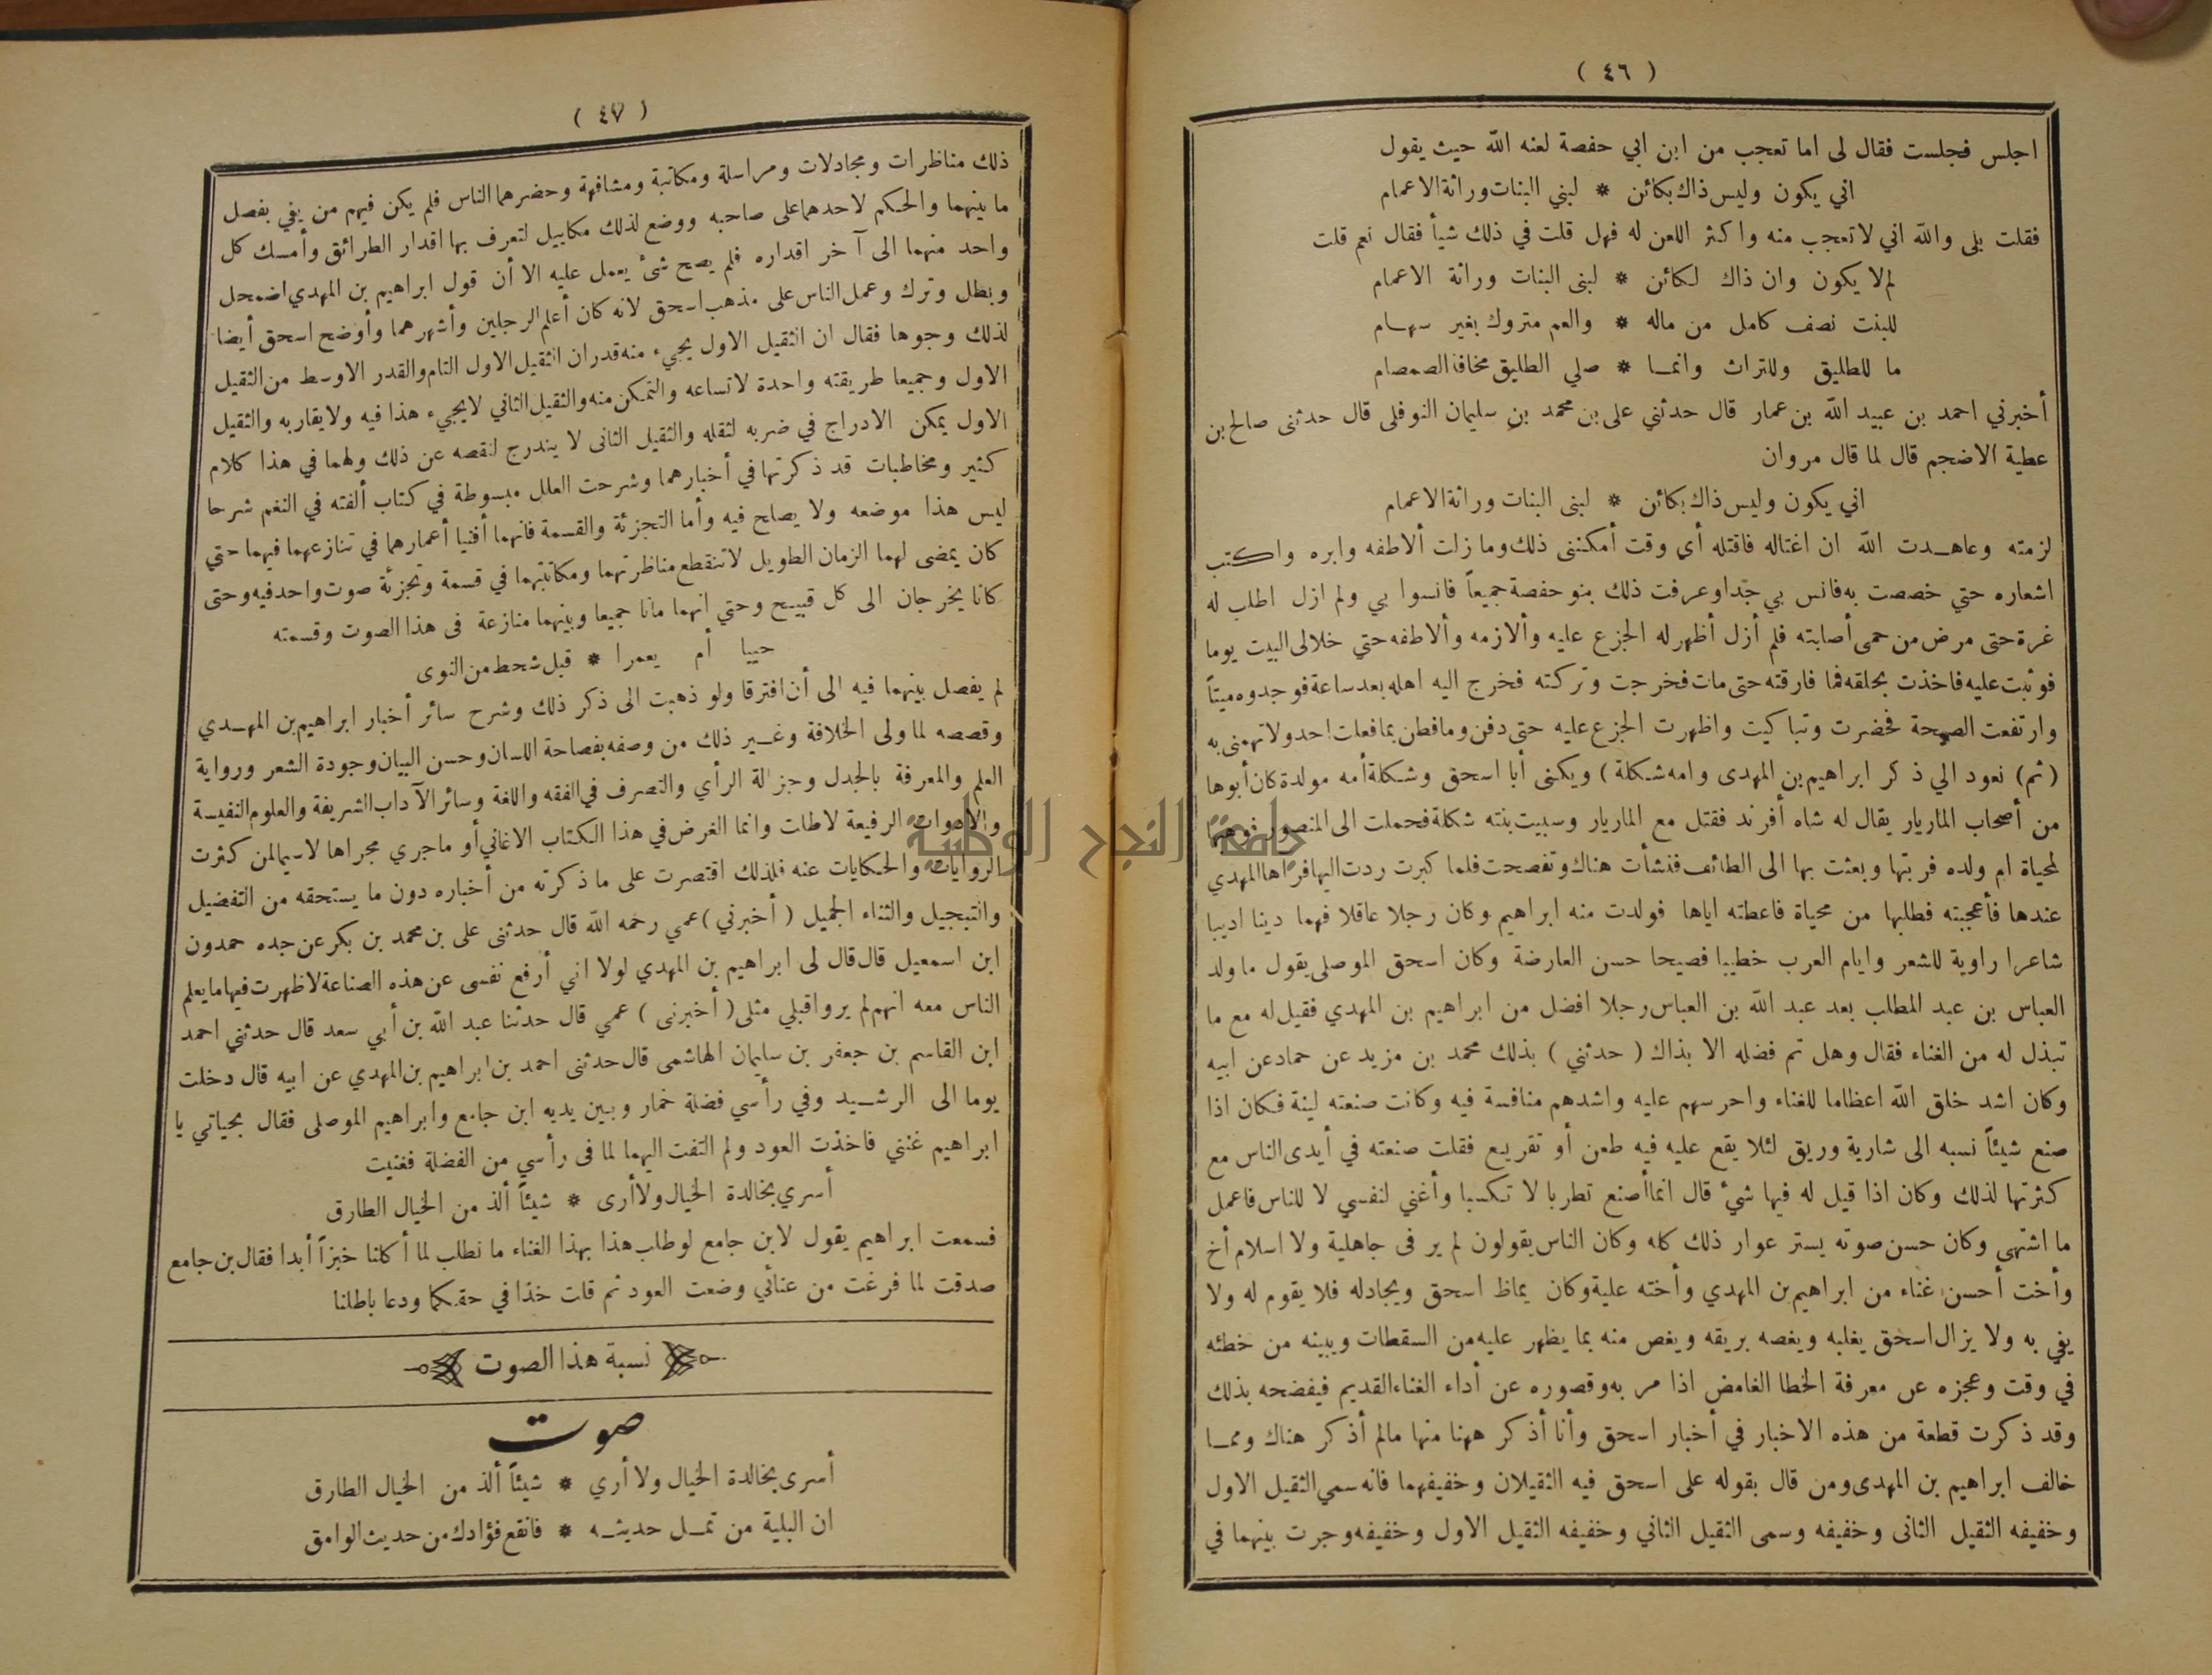 ( ٤٦ )
اجلس فجلست فقال لى اما تعجب من ابن ابي حفصة لعنه الله حيث يقول
اني يكون وليس ذاك بكائن * لبني البنات وراثة الاعمام
فقلت بلى والله اني لاتعجب منه واكثر اللعن له فهل قلت في ذلك شيأ فقال نعم قلت
لم لا يكون وان ذاك لكائن * لبنى البنات وراثة الاعمام
للبنت نصف كامل من ماله * والعم متروك بغير سهام
ما للطليق وللتراث وانما * صلي الطليق مخافة الصمصام
أخبرني احمد بن عبيد الله بن عمار قال حدثني على بن محمد بن سليمان النوفلى قال حدثنى صالح بن
عطية الاضجم قال لما قال مروان
اني يكون وليس ذاك بكائن * لبنى البنات وراثة الاعمام
لزمته وعاهدت الله ان اغتاله فاقتله أي وقت أمكننى ذلك وما زلت ألاطفه وابره واكتب
اشعاره حتي خصصت به فانس بي جدا وعرفت ذلك بنو حفصة جميعاً فانسوا بي ولم ازل اطلب له
غرة حتى مرض من حمى أصابته فلم أزل أظهر له الجزع عليه وألازمه وألاطفه حتي خلا لى البيت يوما
فوثبت عليه فاخذت بحلقه فما فارقته حتى مات فخرجت وتركته فخرج اليه اهله بعد ساعة فوجدوه ميتاً
وارتفعت الصيحة فحضرت وتباكيت واظهرت الجزع عليه حتى دفن وما فطن بما فعلت احد ولا تهمنى به
(ثم) نعود الي ذكر ابراهيم بن المهدى وامه شكلة ) ويكنى أبا اسحق وشكلة أمه مولدة كان أبوها
من أصحاب المازيار يقال له شاه أفرند فقتل مع المازيار وسبيت بنته شكلة فحملت الى المنصور فوهبها
لمحياة ام ولده فربتها وبعثت بها الى الطائف فنشأت هناك وتفصحت فلما كبرت ردت اليها فرآها المهدي
عندها فأعجبته فطلبها من محياة فاعطته اياها فولدت منه ابراهيم وكان رجلا عاقلا فهما دينا اديبا
شاعرا راوية للشعر وايام العرب خطيبا فصيحا حسن العارضة وكان اسحق الموصلى يقول ما ولد
العباس بن عبد المطلب بعد عبد الله بن العباس رجلا افضل من ابراهيم بن المهدي فقيل له مع ما
تبذل له من الغناء فقال وهل تم فضله الا بذاك ( حدثني ) بذلك محمد بن مزيد عن حماد عن ابيه
وكان اشد خلق الله اعظاما للغناء واحرسهم عليه واشدهم منافسة فيه وكانت صنعته لينة فكان اذا
صنع شيئاً نسبه الى شارية وريق لئلا يقع عليه فيه طعن أو تقريع فقلت صنعته في أيدى الناس مع
كثرتها لذلك وكان اذا قيل له فيها شئ قال انما أصنع تطربا لا تكسبا وأغني لنفسي لا للناس فاعمل
ما اشتهى وكان حسن صوته يستر عوار ذلك كله وكان الناس يقولون لم ير فى جاهلية ولا اسلام أخ
وأخت أحسن غناء من ابراهيم بن المهدي وأخته علية وكان يماظ اسحق ويجادله فلا يقوم له ولا
يفي به ولا يزال اسحق يغلبه ويغصه بريقه ويغص منه بما يظهر عليه من السقطات ويبينه من خطئه
في وقت وعجزه عن معرفة الخطا الغامض اذا مر به وقصوره عن أداء الغناء القديم فيفضحه بذلك
وقد ذكرت قطعة من هذه الاخبار في أخبار اسحق وأنا أذكر ههنا منها مالم أذكر هناك ومما
خالف ابراهيم بن المهدى ومن قال بقوله على اسحق فيه الثقيلان وخفيفهما فانه سمي الثقيل الاول
وخفيفه الثقيل الثانى وخفيفه وسمى الثقيل الثاني وخفيفه الثقيل الاول وخفيفه وجرت بينهما في
( ٤٧ )
ذلك مناظرات ومجادلات ومراسلة ومكاتبة ومشافهة وحضرهما الناس فلم يكن فيهم من يفي بفصل
ما بينهما والحكم لاحدهما على صاحبه ووضع لذلك مكاييل لتعرف بها اقدار الطرائق وأمسك كل
واحد منهما الى آخر اقداره فلم يصح شئ يعمل عليه الا أن قول ابراهيم بن المهدي اضمحل
وبطل وترك وعمل الناس على مذهب اسحق لانه كان أعلم الرجلين وأشهرهما وأوضح اسحق أيضا
لذلك وجوها فقال ان الثقيل الاول يجيء منه قدران الثقيل الاول التام والقدر الاوسط من الثقيل
الاول وجميعا طريقته واحدة لاتساعه والتمكن منه والثقيل الثاني لا يجيء هذا فيه ولا يقاربه والثقيل
الاول يمكن الادراج في ضربه لثقله والثقيل الثانى لا يندرج لنقصه عن ذلك ولهما في هذا كلام
كثير ومخاطبات قد ذكرتها في أخبارهما وشرحت العلل مبسوطة في كتاب ألفته في النغم شرحا
ليس هذا موضعه ولا يصلح فيه وأما التجزئة والقسمة فانهما أفنيا أعمارهما في تنازعهما فيهما حتي
كان يمضى لهما الزمان الطويل لا تنقطع مناظرتهما ومكاتبتهما في قسمة وتجزئة صوت واحد فيه وحتى
كانا يخرجان الى كل قبيح وحتي انهما ماتا جميعا وبينهما منازعة فى هذا الصوت وقسمته
حييا أم يعمرا * قبل شحط من النوى
لم يفصل بينهما فيه الى أن افترقا ولو ذهبت الى ذكر ذلك وشرح سائر أخبار ابراهيم بن المهدي
وقصصه لما ولى الخلافة وغير ذلك من وصفه بفصاحة اللسان وحسن البيان وجودة الشعر ورواية
العلم والمعرفة بالجدل وجزالة الرأي والتصرف في الفقه واللغة وسائر الآداب الشريفة والعلوم النفيسة
والادوات الرفيعة لاطلت وانما الغرض في هذا الكتاب الاغاني أو ما جري مجراها لا سيما لمن كثرت
الروايات والحكايات عنه فلذلك اقتصرت على ما ذكرته من أخباره دون ما يستحقه من التفضيل
والتبجيل والثناء الجميل ( أخبرني ) عمي رحمه الله قال حدثنى على بن محمد بن بكر عن جده حمدون
ابن اسمعيل قال قال لى ابراهيم بن المهدي لولا اني أرفع نفسى عن هذه الصناعة لاظهرت فيها ما يعلم
الناس معه انهم لم يروا قبلي مثلى ( أخبرنى ) عمي قال حدثنا عبد الله بن أبي سعد قال حدثني احمد
ابن القاسم بن جعفر بن سليمان الهاشمى قال حدثنى احمد بن ابراهيم بن المهدي عن ابيه قال دخلت
يوما الى الرشيد وفي رأسي فضلة خمار وبين يديه ابن جامع وابراهيم الموصلى فقال بحياتي يا
ابراهيم غنني فاخذت العود ولم التفت اليهما لما فى رأسي من الفضلة فغنيت
أسري بخالدة الخيال ولا أرى * شيئاً ألذ من الخيال الطارق
فسمعت ابراهيم يقول لابن جامع لو طاب هذا بهذا الغناء ما نطلب لما أكلنا خبزاً أبدا فقال بن جامع
صدقت لما فرغت من غنائي وضعت العود ثم قلت خذا في حقكما ودعا باطلنا
نسبة هذا الصوت
صوت
أسرى بخالدة الخيال ولا أري * شيئاً ألذ من الخيال الطارق
ان البلية من تمل حديثه * فانقع فؤادك من حديث الوامق
جامعة النجاح الوطنية